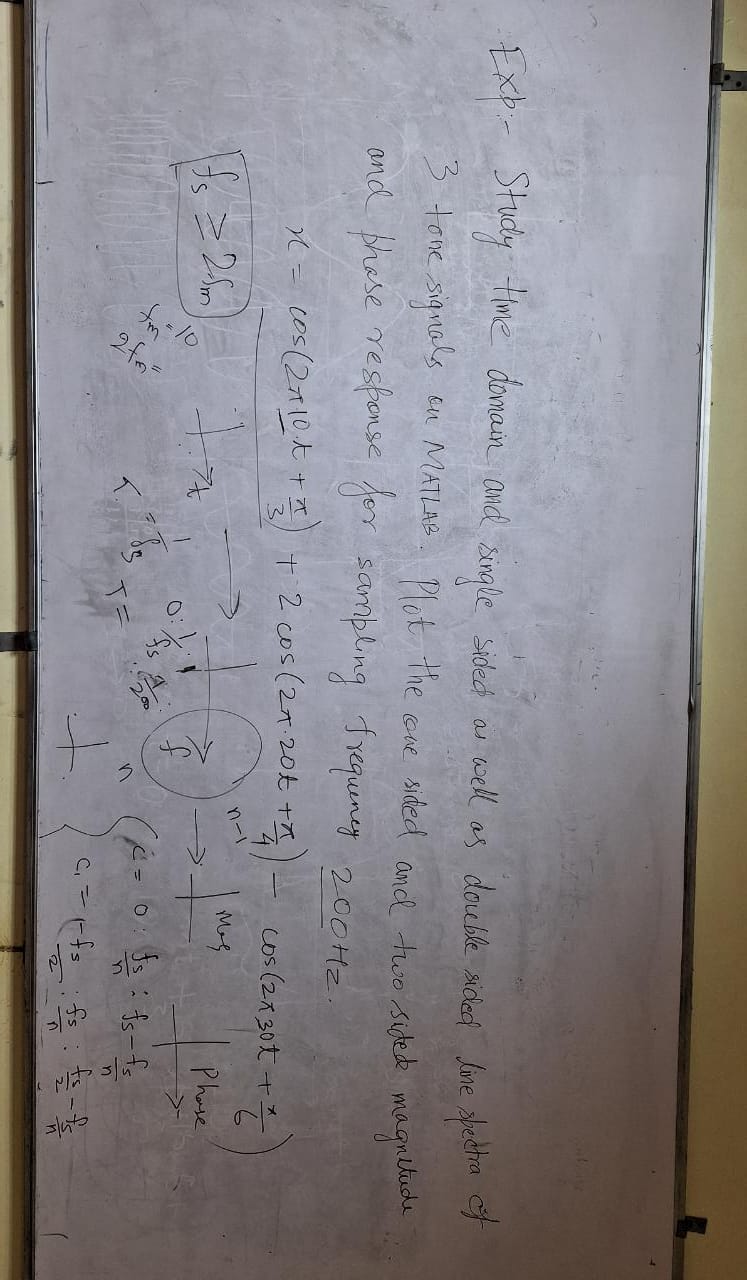 Exp:- Study time domain and single sided as well as double sided line spectra of
3 tone signals on MATLAB. Plot the one sided and two sided magnitude
and phase response for sampling frequency 200Hz.
x = cos(2π10t + π/3) + 2 cos(2π·20t + π/4) - cos(2π30t + π/6)
fs ≥ 2fm
t
f
n-1
Mag
Phase
0:1/fs
n
c = 0 : fs/n : fs - fs/n
c1 = -fs/2 : fs/n : fs/2 - fs/n